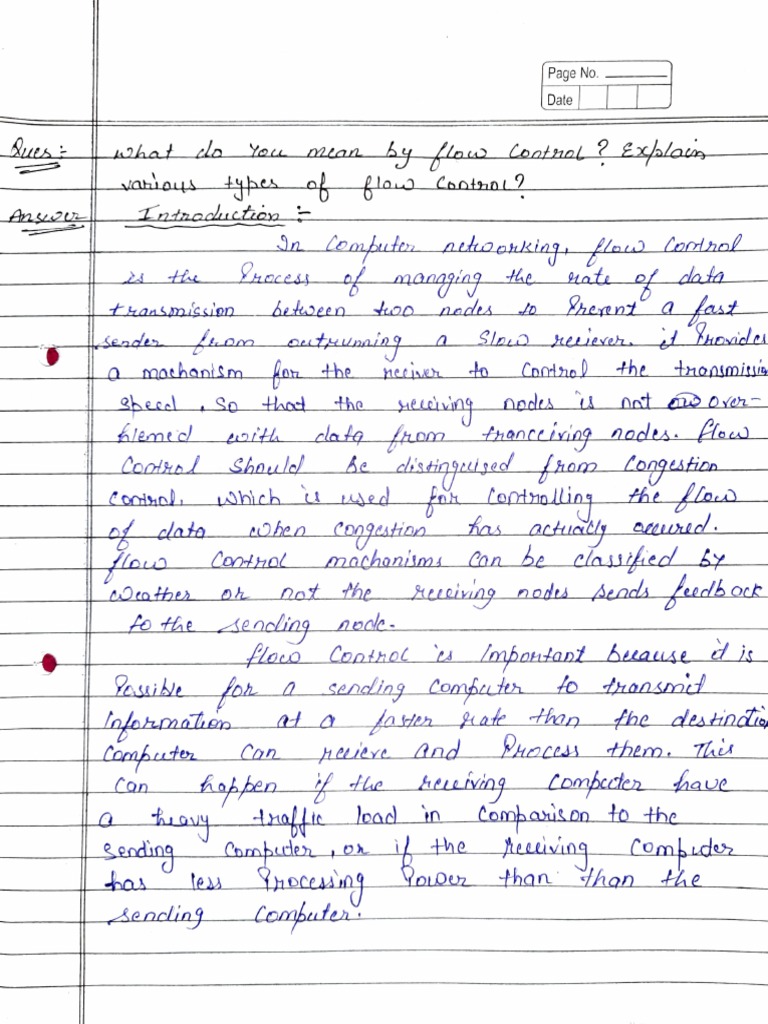 Page No.
Date
Ques:- What do you mean by flow control? Explain
various types of flow control?
Answer Introduction :-
In Computer networking, flow control
is the Process of managing the rate of data
transmission between two nodes to Prevent a fast
sender from outrunning a slow reciever. it Provides
a machanism for the reciver to control the transmissio
speed, so that the receiving nodes is not over-
hlemed with data from trancciving nodes. flow
control should be distinguised from congestion
control, which is used for controlling the flow
of data when congestion has actually occured.
flow control machanisms can be classified by
weather or not the receiving nodes sends feedback
to the sending node.
flow control is important because it is
Possible for a sending computer to transmit
information at a faster rate than the destinatio
computer can recieve and Process them. This
can happen if the receiving computer have
a heavy traffic load in comparison to the
sending computer, or if the receiving computer
has less Processing Power than than the
sending computer.